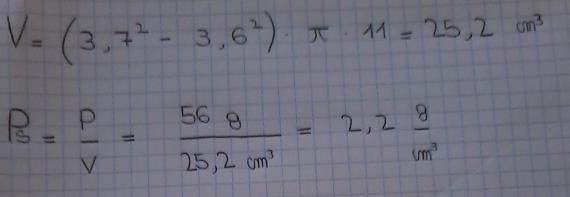 V = (3,7² - 3,6²) · π · 11 = 25,2 cm³
Ps = P/V = 56 g / 25,2 cm³ = 2,2 g/cm³